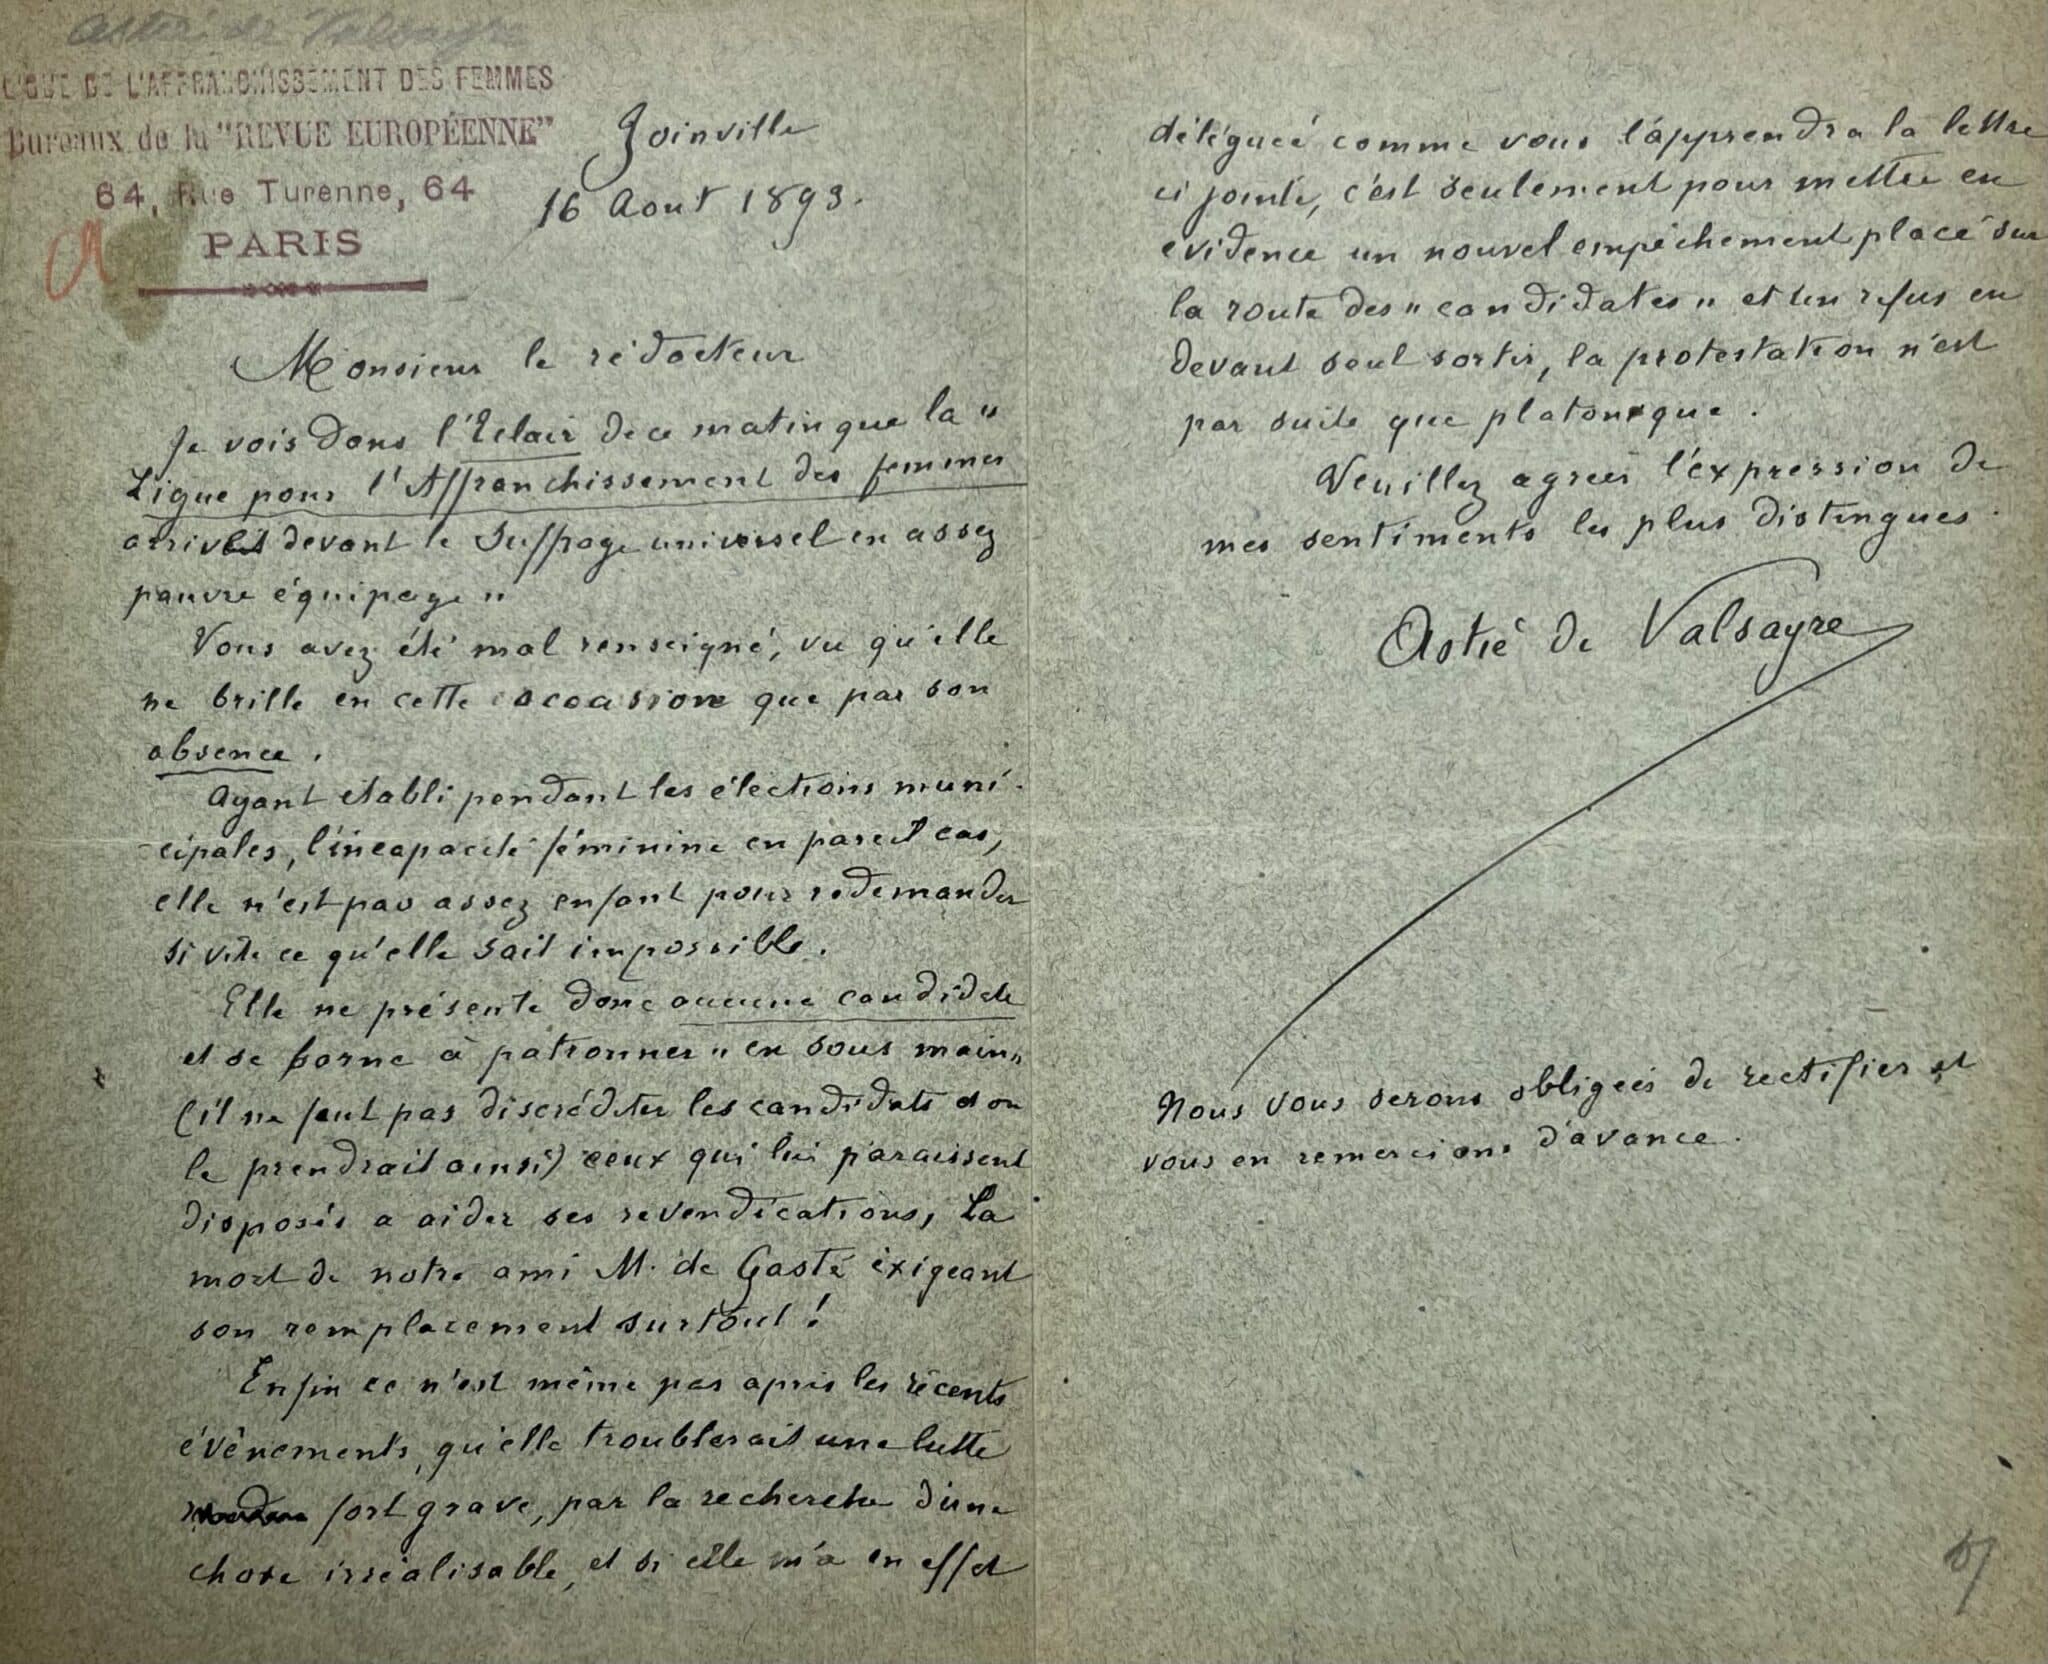 Astié de Valsayre
LIGUE DE L'AFFRANCHISSEMENT DES FEMMES
Bureaux de la "REVUE EUROPÉENNE"
64, Rue Turenne, 64
PARIS
Joinville
16 Aout 1893.
Monsieur le rédacteur
Je vois dans l'Eclair de ce matin que la "
Ligue pour l'Affranchissement des femmes
arrive devant le Suffrage universel en assez
pauvre équipage "
Vous avez été mal renseigné, vu qu'elle
ne brille en cette occasion que par son
absence.
Ayant établi pendant les élections muni-
cipales, l'incapacité féminine en pareil cas,
elle n'est pas assez enfant pour redemander
si vite ce qu'elle sait impossible.
Elle ne présente donc aucune candidate
et se borne à patronner " en sous main "
(il ne faut pas discréditer les candidats et on
le prendrait ainsi) ceux qui lui paraissent
disposés a aider ses revendications, La
mort de notre ami M. de Gasté exigeant
son remplacement surtout !
Enfin ce n'est même pas après les récents
évênements, qu'elle troublerait une lutte
fort grave, par la recherche d'une
chose irréalisable, et si elle m'a en effet
déléguée comme vous l'apprendra la lettre
ci jointe, c'est seulement pour mettre en
evidence un nouvel empêchement placé sur
la route des " candidates " et un refus en
devant seul sortir, la protestation n'est
par suite que platonique.
Veuillez agréer l'expression de
mes sentiments les plus distingues.
Astié de Valsayre
Nous vous serons obligées de rectifier et
vous en remercions d'avance.